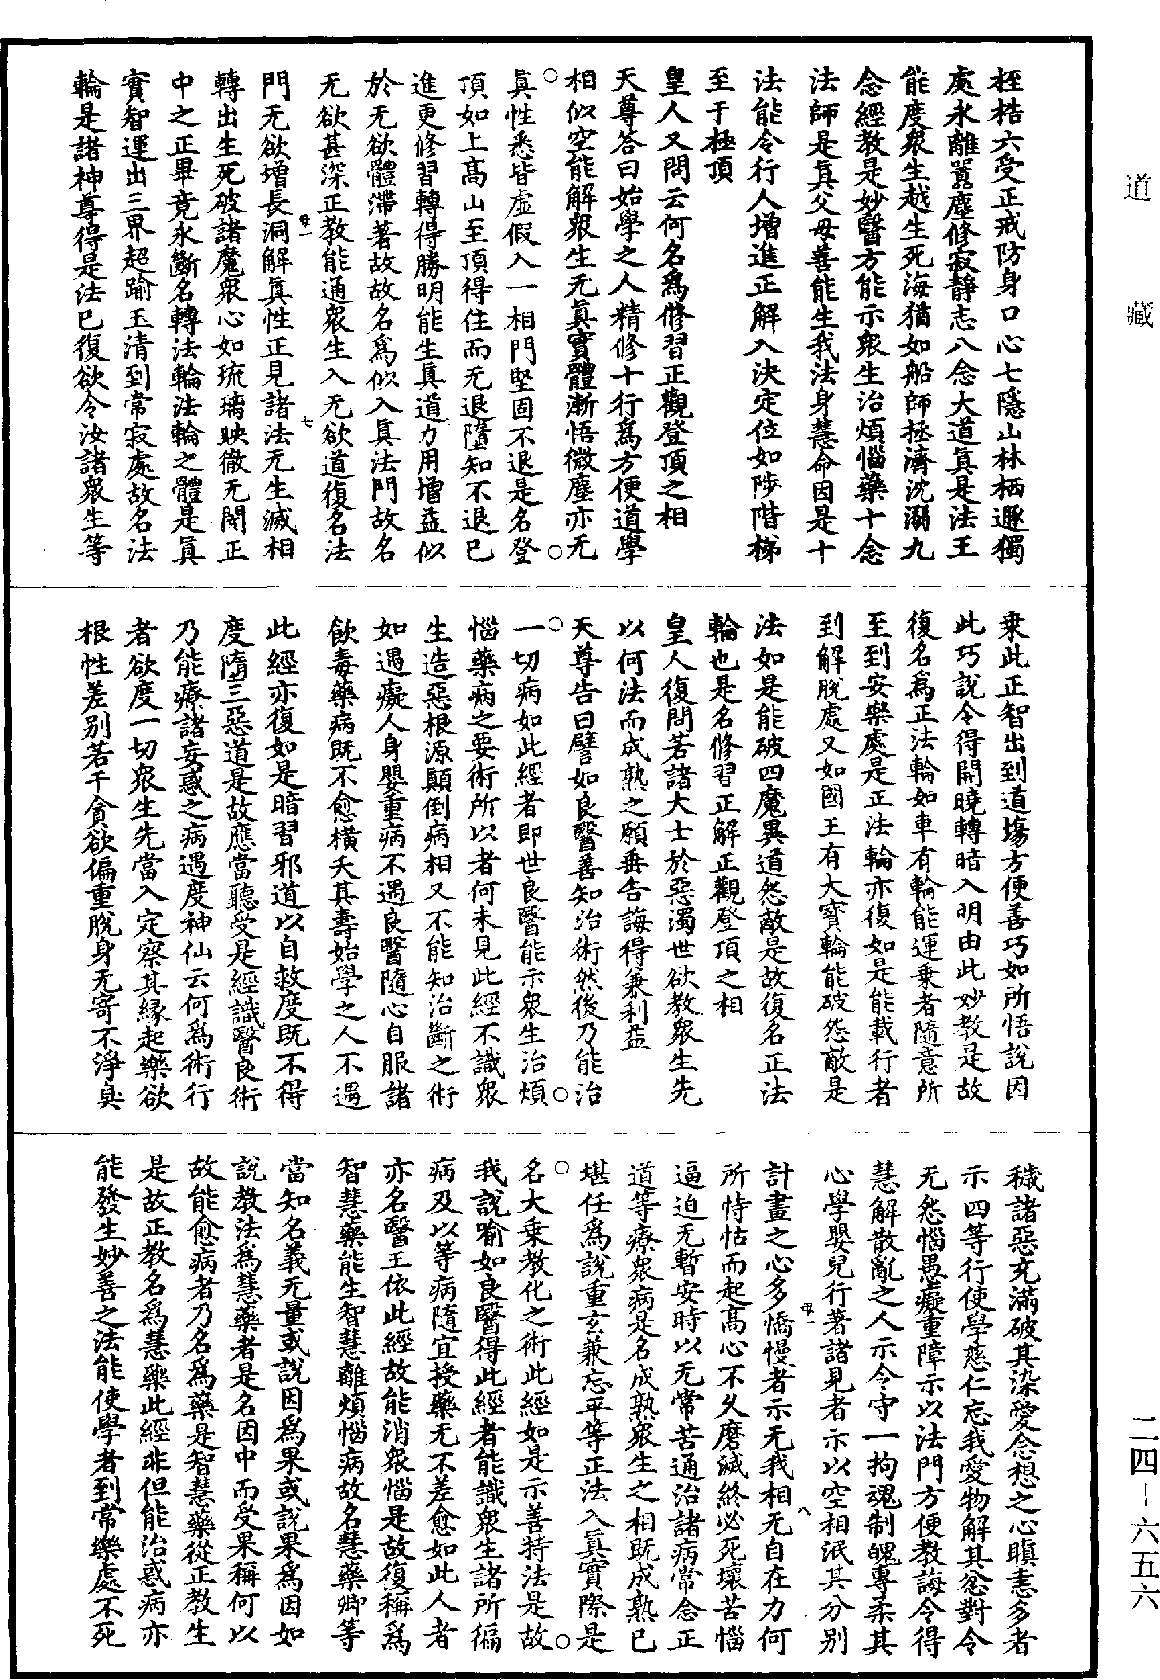 道藏
桎梏六受正戒防身口心七隱山林栖遯獨
處永離囂塵修寂靜志八念大道真是法王
能度衆生越生死海猶如船師拯濟沈溺九
念經教是妙醫方能示衆生治煩惱藥十念
法師是真父母善能生我法身慧命因是十
法能令行人增進正解入決定位如陟階梯
至于極頂
皇人又問云何名爲修習正觀登頂之相
天尊答曰始學之人精修十行爲方便道學
相似空能解衆生无真實體漸悟微塵亦无
真性悉皆虛假入一相門堅固不退是名登
頂如上高山至頂得住而无退墮知不退已
進更修習轉得勝明能生真道力用增益似
於无欲體滯著故名爲似入真法門故名
无欲甚深正教能通衆生入无欲道復名法
門无欲增長洞解真性正見諸法无生滅相
轉出生死破諸魔衆心如琉璃映徹无閡正
中之正畢竟永斷名轉法輪法輪之體是真
實智運出三界超踰玉清到常寂處故名法
輪是諸神尊得是法已復欲令汝諸衆生等
乗此正智出到道場方便善巧如所悟說因
此巧說令得開曉轉暗入明由此妙教是故
復名爲正法輪如車有輪能運乗者隨意所
至到安樂處是正法輪亦復如是能載行者
到解脫處又如國王有大寶輪能破怨敵是
法如是能破四魔異道怨敵是故復名正法
輪也是名修習正解正觀登頂之相
皇人復問若諸大士於惡濁世欲教衆生先
以何法而成熟之願垂告誨得兼利益
天尊告曰譬如良醫善知治術然後乃能治
一切病如此經者即世良醫能示衆生治煩
惱藥病之要術所以者何未見此經不識衆
生造惡根源顛倒病相又不能知治斷之術
如遇癡人身嬰重病不遇良醫隨心自服諸
飲毒藥病既不愈橫夭其壽始學之人不遇
此經亦復如是暗習邪道以自救度既不得
度墮三惡道是故應當聽受是經識醫良術
乃能療諸妄惑之病遇度神仙云何爲術行
者欲度一切衆生先當入定察其緣起樂欲
根性差別若千貪欲偏重脫身无寄不淨臭
穢諸惡充滿破其染愛念想之心瞋恚多者
示四等行使學慈仁忘我愛物解其忿對令
无怨惱愚癡重障示以法門方便教誨令得
慧解散亂之人示令守一拘魂制魄專柔其
心學嬰兒行著諸見者示以空相泯其分別
計畫之心多憍慢者示无我相无自在力何
所恃怙而起高心不久磨滅終必死壞苦惱
逼迫无暫安時以无常苦通治諸病常念正
道等療衆病是名成熟衆生之相既成熟已
堪任爲說重玄兼忘平等正法入真實際是
名大乗教化之術此經如是示善持法是故
我說喻如良醫得此經者能識衆生諸所偏
病及以等病隨宜授藥无不差愈如此人者
亦名醫王依此經故能消衆惱是故復稱爲
智慧藥能生智慧離煩惱病故名慧藥卿等
當知名義无量或說因爲果或說果爲因如
說教法爲慧藥者是名因中而受果稱何以
故能愈病者乃名爲藥是智慧藥從正教生
是故正教名爲慧藥此經非但能治惑病亦
能發生妙善之法能使學者到常樂處不死
二四—六五六